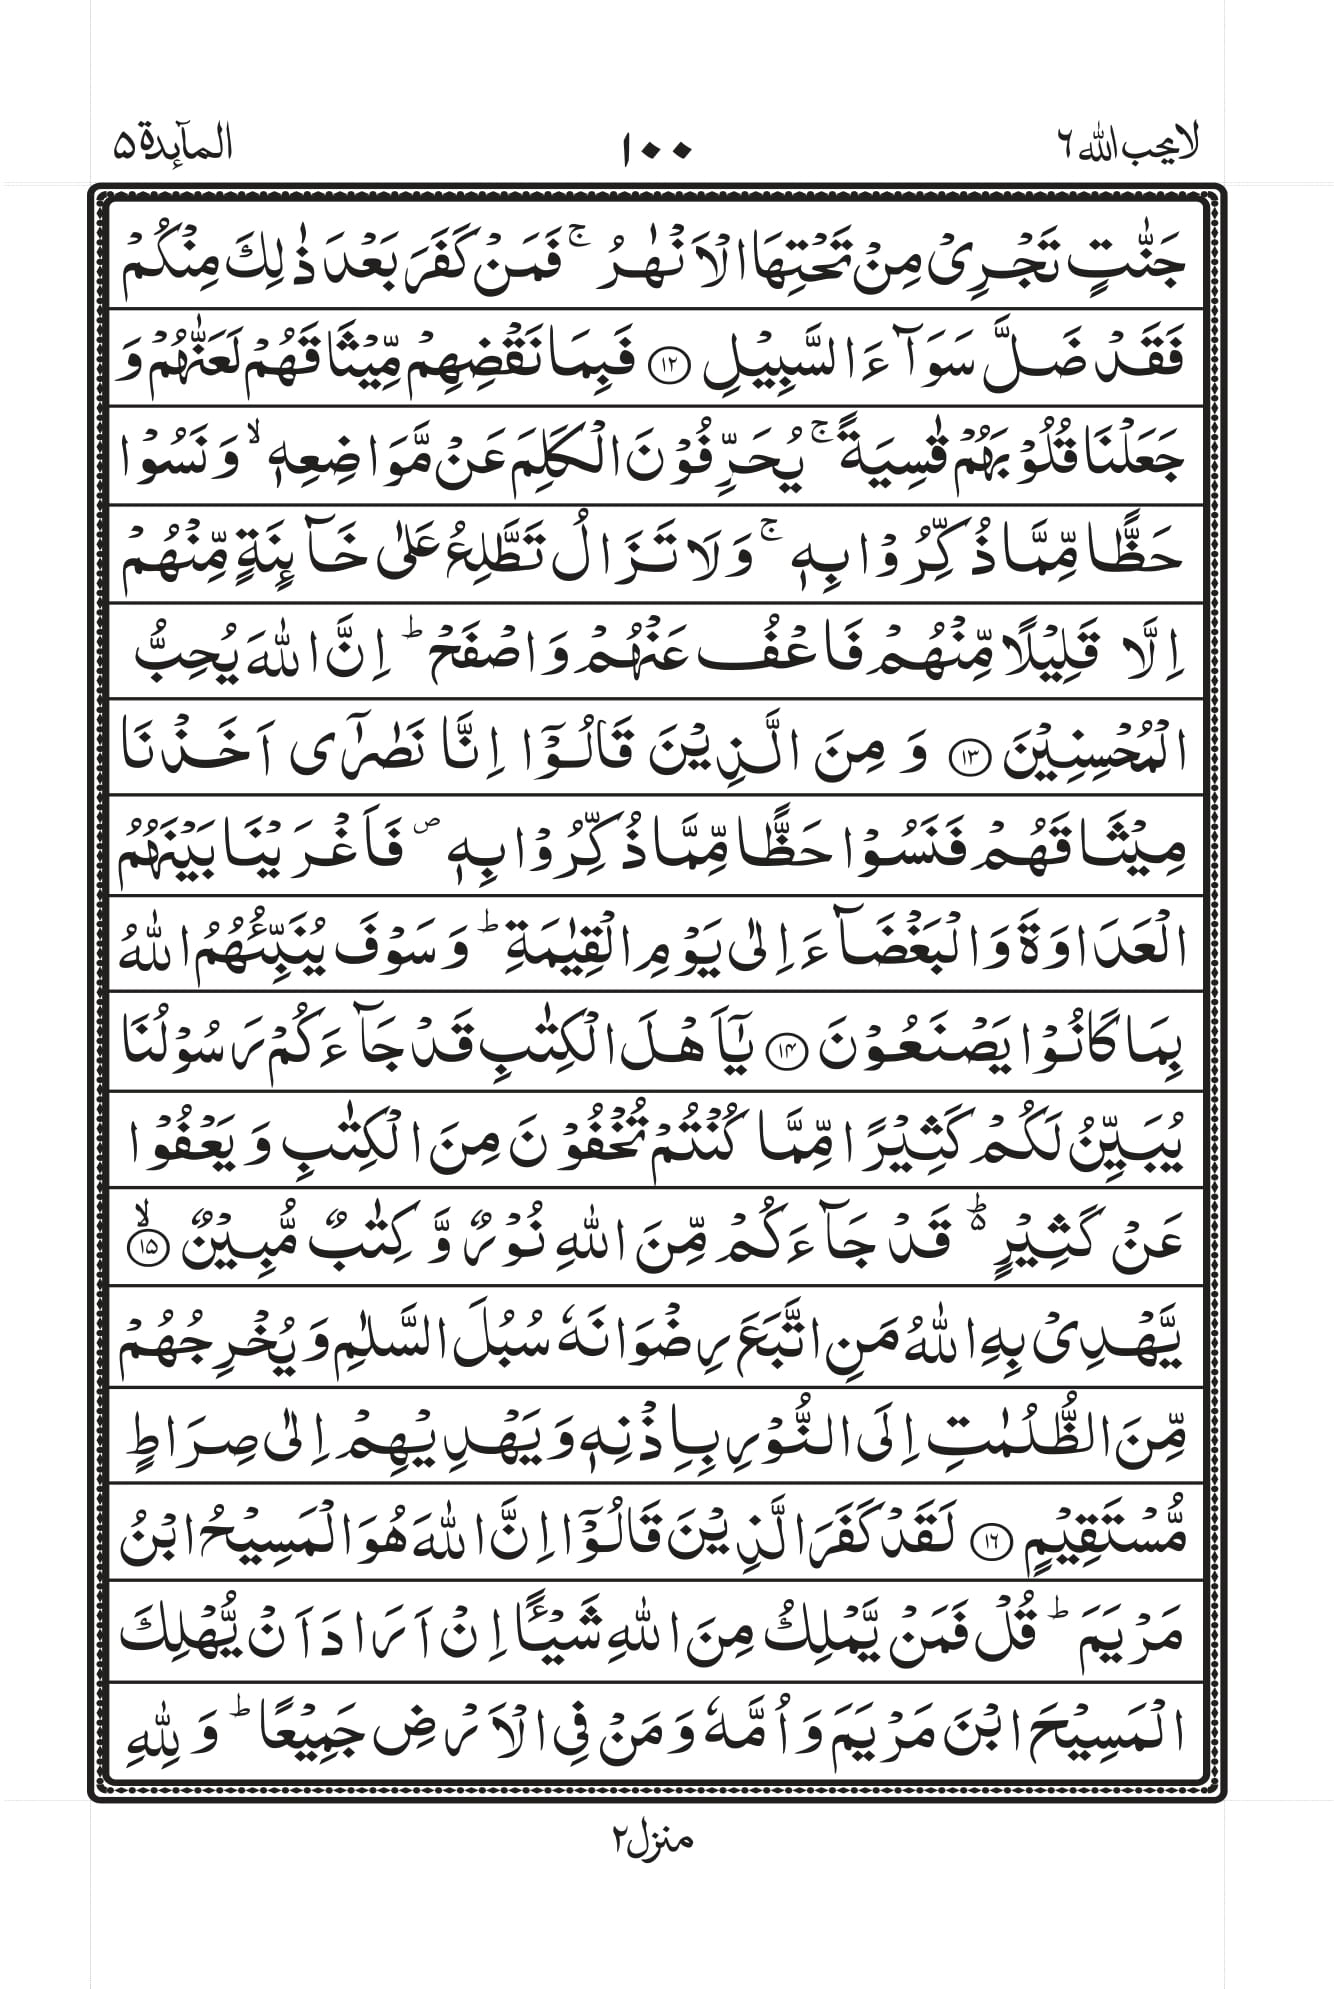 لا یحب الله ٦ ١٠٠ المآئدة ۵
جَنّٰتٍ تَجْرِیْ مِنْ تَحْتِهَا الْاَنْهٰرُ ۚ فَمَنْ كَفَرَ بَعْدَ ذٰلِكَ مِنْكُمْ
فَقَدْ ضَلَّ سَوَآءَ السَّبِیْلِ ﴿۱۲﴾ فَبِمَا نَقْضِهِمْ مِّیْثَاقَهُمْ لَعَنّٰهُمْ وَ
جَعَلْنَا قُلُوْبَهُمْ قٰسِیَةً ۚ یُحَرِّفُوْنَ الْكَلِمَ عَنْ مَّوَاضِعِهٖ ۙ وَ نَسُوْا
حَظًّا مِّمَّا ذُكِّرُوْا بِهٖ ۚ وَ لَا تَزَالُ تَطَّلِعُ عَلٰی خَآىِٕنَةٍ مِّنْهُمْ
اِلَّا قَلِیْلًا مِّنْهُمْ فَاعْفُ عَنْهُمْ وَ اصْفَحْ ؕ اِنَّ اللّٰهَ یُحِبُّ
الْمُحْسِنِیْنَ ﴿۱۳﴾ وَ مِنَ الَّذِیْنَ قَالُوْۤا اِنَّا نَصٰرٰۤی اَخَذْنَا
مِیْثَاقَهُمْ فَنَسُوْا حَظًّا مِّمَّا ذُكِّرُوْا بِهٖ ۪ فَاَغْرَیْنَا بَیْنَهُمُ
الْعَدَاوَةَ وَ الْبَغْضَآءَ اِلٰی یَوْمِ الْقِیٰمَةِ ؕ وَ سَوْفَ یُنَبِّئُهُمُ اللّٰهُ
بِمَا كَانُوْا یَصْنَعُوْنَ ﴿۱۴﴾ یٰۤاَهْلَ الْكِتٰبِ قَدْ جَآءَكُمْ رَسُوْلُنَا
یُبَیِّنُ لَكُمْ كَثِیْرًا مِّمَّا كُنْتُمْ تُخْفُوْنَ مِنَ الْكِتٰبِ وَ یَعْفُوْا
عَنْ كَثِیْرٍ ؕ۬ قَدْ جَآءَكُمْ مِّنَ اللّٰهِ نُوْرٌ وَّ كِتٰبٌ مُّبِیْنٌ ﴿ۙ۱۵﴾
یَّهْدِیْ بِهِ اللّٰهُ مَنِ اتَّبَعَ رِضْوَانَهٗ سُبُلَ السَّلٰمِ وَ یُخْرِجُهُمْ
مِّنَ الظُّلُمٰتِ اِلَی النُّوْرِ بِاِذْنِهٖ وَ یَهْدِیْهِمْ اِلٰی صِرَاطٍ
مُّسْتَقِیْمٍ ﴿۱۶﴾ لَقَدْ كَفَرَ الَّذِیْنَ قَالُوْۤا اِنَّ اللّٰهَ هُوَ الْمَسِیْحُ ابْنُ
مَرْیَمَ ؕ قُلْ فَمَنْ یَّمْلِكُ مِنَ اللّٰهِ شَیْـًٔا اِنْ اَرَادَ اَنْ یُّهْلِكَ
الْمَسِیْحَ ابْنَ مَرْیَمَ وَ اُمَّهٗ وَ مَنْ فِی الْاَرْضِ جَمِیْعًا ؕ وَ لِلّٰهِ
منزل ۲